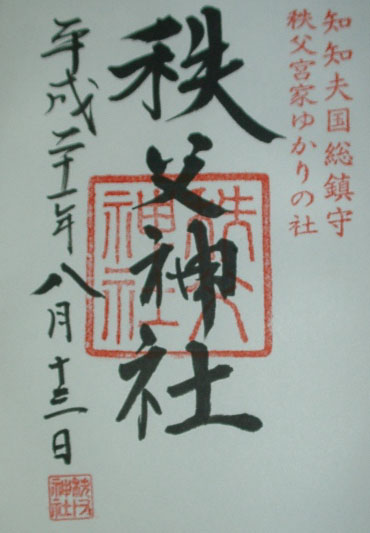 知知夫国総鎮守
秩父宮家ゆかりの社
秩父神社
秩父神社
平成二十一年八月十三日
秩父神社